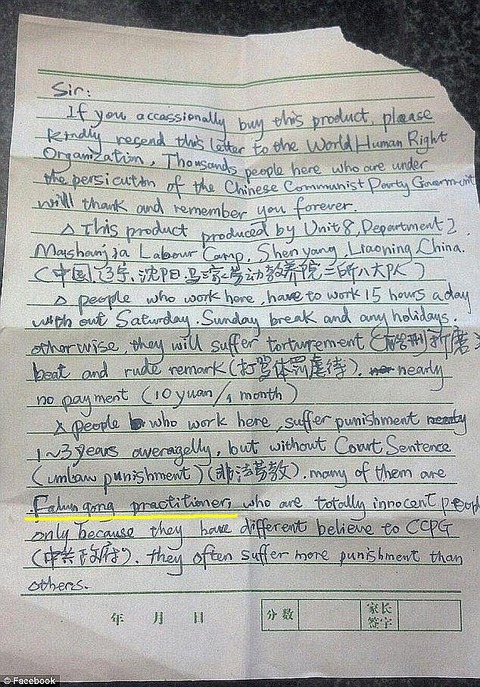 Sir:
If you occassionally buy this product, please
kindly resend this letter to the World Human Right
Organization. Thousands people here who are under
the persicution of the Chinese Communist Party Government
will thank and remember you forever.
This product produced by Unit 8, Department 2
Mashanjia Labour Camp, Shen yang, Liaoning, China.
(中国,辽宁,沈阳,马三家劳动教养院二所八大队)
people who work here, have to work 15 hours a day
with out Saturday. Sunday break and any holidays.
otherwise, they will suffer torturement (酷刑折磨)
beat and rude remark (打骂体罚虐待). nearly
no payment (10 yuan/1 month)
people who work here, suffer punishment
1~3 years averagelly, but without Court Sentence
(unlaw punishment) (非法劳教). many of them are
Falun gong practitioner, who are totally innocent people
only because they have different believe to CCPG
(中共政府). they often suffer more punishment than
others.
年 月 日 分数 家长签字
© Facebook